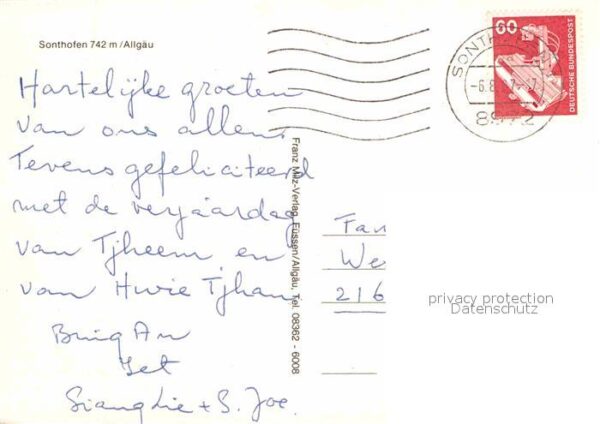 Sonthofen 742 m/Allgäu
Hartelijke groeten
van ons allen.
Tevens gefeliciteerd
met de verjaardag
van Tjheem en
van Hwie Tjhan
Bing An
Jet
Siang Lie + S. Joe.
Franz Milz-Verlag, Füssen/Allgäu, Tel. 08362 - 6008
60
DEUTSCHE BUNDESPOST
SONTH
-6.8.
8972
Fam
We
216
privacy protection
Datenschutz